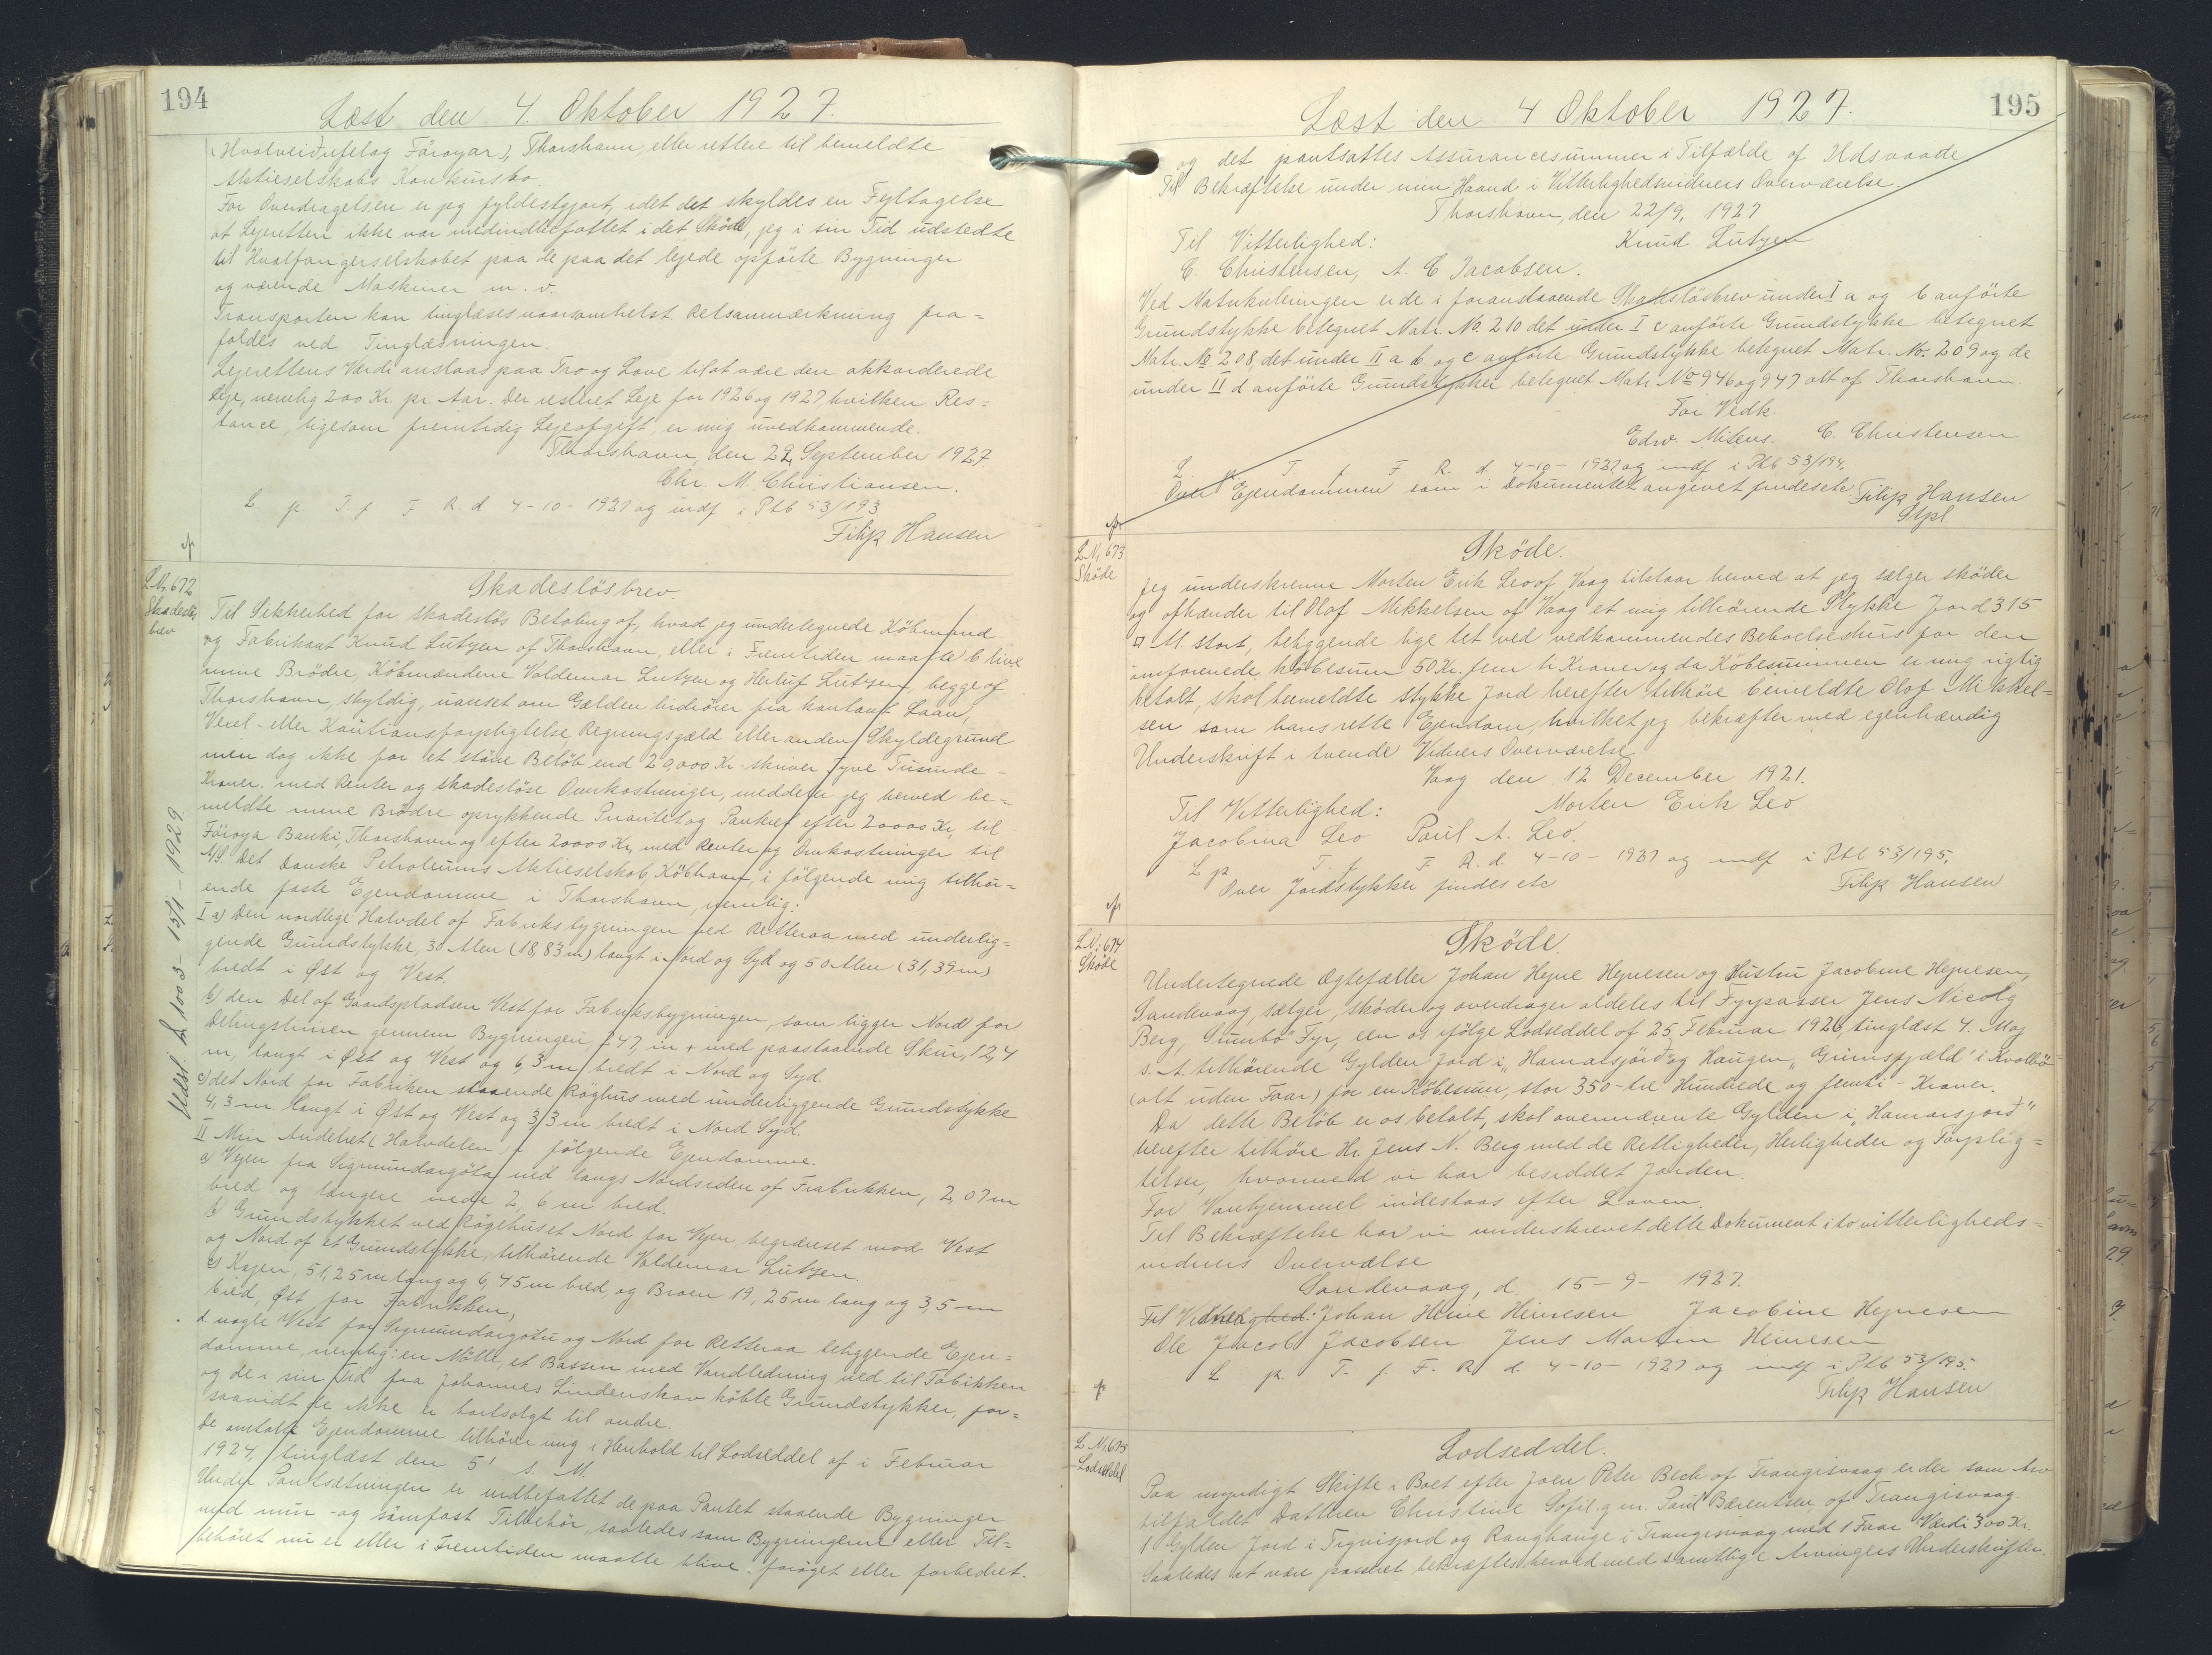 194
Læst den 4 Oktober 1927.
(Hvalveiðufelag Föroyar), Thorshavn, eller rettere til bemeldte
Aktieselskabs Konkursbo.
For Overdragelsen er jeg fyldestgjort, idet det skyldes en Fejltagelse
at Lejeretten ikke var medindbefattet i det Sköde, jeg i sin Tid udstedte
til Hvalfangerselskabet paa de paa det lejede opförte Bygninger
og værende Maskiner m. v.
Transporten kan tinglæses naarsomhelst Retsanmærkning fra=
faldes ved Tinglæsningen.
Lejerettens Værdi anslaas paa Tro og Love til at være den akkorderede
Leje, nemlig 200 Kr. pr. Aar. Der resterer Leje for 1926 og 1927, hvilken Res=
tance, ligesom fremtidig Lejeafgift er mig uvedkommende.
Thorshavn, den 22 September 1927
Chr. M. Christiansen.
L p T f F R. d 4-10-1927 og indf i Ptb 53/193.
Filip Hansen
L.Nr. 672
Skadeslös
brev
Skadeslösbrev.
Til Sikkerhed for skadeslös Betaling af, hvad jeg undertegnede Köbmand
og Fabrikant Knud Lützen af Thorshavn, eller i Fremtiden maatte blive
mine Brödre, Köbmændene Valdemar Lutzen og Herluf Lutzen, begge af
Thorshavn, skyldig, uanset om Gælden hidrörer fra kontant Laan,
Vexel- eller Kautionsforpligtelse Regningsgæld eller anden Skyldegrund
men dog ikke for et större Belöb end 20,000 Kr. skriver Tyve Tusinde
Kroner. med Renter og skadeslöse Omkostninger, meddeler jeg herved be=
meldte mine Brödre oprykkende Prioritet og Panteret efter 20000 Kr. til
Föroya Banki, Thorshavn og efter 20000 Kr. med Renter og Omkostninger til
A/S. Det Danske Petroleums Aktieselskab, Köbhavn, i fölgende mig tilhör=
ende faste Ejendomme i Thorshavn, nemlig:
I a) Den nordlige Halvdel af Fabriksbygningen ved Retteraa med underlig=
gende Grundstykke, 30 Alen (18,83 m) langt i Nord og Syd og 50 Alen (31,39 m)
bredt i Øst og Vest.
b) den Del af Gaardspladsen Vest for Fabriksbygningen, som ligger Nord for
Delingslinien gennem Bygningen, 7.47, m + med paastaaende Skur, 12,4
m, langt i Øst og Vest og 6,3 m bredt i Nord og Syd.
c) det Nord for Fabriken staaende Röghus med underliggende Grundstykke
4,3 m langt i Øst og Vest og 3,3 m bredt i Nord Syd.
II Min Andelret (Halvdelen) i fölgende Ejendomme.
a) Vejen fra Sigmundargöta ned langs Nordsiden af Fabrikken, 2,07 m
bred og længere nede 2,6 m bred.
b) Grundstykket ved Rögehuset Nord for Vejen, begrænset mod Vest
og Nord af et Grundstykke, tilhörende Valdemar Lutzen.
c) Kajen, 51,25 m lang og 6,45 m bred, og Broen 19,25 m lang og 3,5 m
bred, Øst for Fabrikken,
d nogle Vest for Sigmundargötu og Nord for Retteraa beliggende Ejen=
domme, nemlig: en Mölle, et Bassin med Vandledning ned til Fabrikken
og de i sin Tid fra Johannes Lindenskov köbte Grundstykker, for=
saavidt de ikke er bortsolgt til andre.
De omtalte Ejendomme tilhörer mig i Henhold til Lodseddel af i Februar
1927, tinglæst den 5' s. M.
Under Pantsætningen er indbefattet de paa Pantet staaende Bygninger
med mur- og sömfast Tilbehör, saaledes som Bygningerne eller Til=
behöret nu er eller i Fremtiden maatte blive foröget eller forbedret.
195
Læst den 4 Oktober 1927.
og det pantsattes Assurancesummer i Tilfælde af Ildsvaade
Til Bekræftelse under min Haand i Vitterlighedsvidners Overværelse.
Thorshavn, den 22/9, 1927
Til Vitterlighed: Knud Lutzen
C. Christensen, A. C Jacobsen.
Ved Matrikuleringen er de i foranstaaende Skadeslösbrev under I a og b anförte
Grundstykke betegnet Matr. No. 210 det under I c anförte Grundstykke betegnet
Matr. No 208, det under II a b og c anförte Grundstykke betegnet Matr. No. 209 og de
under II d anförte Grundstykker betegnet Matr No 946 og 947 alt af Thorshavn.
For Vedk
Edw. Mitens. C. Christensen
L p. T f. F R. d. 4-10-1927 og indf i Ptb 53/194.
Over Ejendommen som i Dokumentet angivet findes etc Filip Hansen
Stpl.
L.Nr. 673
Sköde
Sköde.
Jeg underskrevne Morten Erik Leo af Vaag tilstaar herved at jeg sælger sköder
og afhænder til Olaf Mikkelsen af Vaag et mig tilhörende Stykke Jord 315
□ Al. stort, beliggende lige tet ved vedkommendes Beboelseshus for den
omforenede, köbesum 50 Kr. fem ti Kroner og da Köbesummen er mig rigtig
betalt, skal bemeldte stykke Jord herefter tilhöre bemeldte Olaf Mikkel=
sen som hans rette Ejendom, hvilket jeg bekræfter med egenhændig
Underskrift i tvende Vidners Overværelse
Vaag den 12 December 1921.
Til Vitterlighed: Morten Erik Leo
Jacobina Leo Poul A. Leo.
L p T. f. F R. d. 4-10-1927 og indf i Ptb 53/195.
Over Jordstykket findes etc Filip Hansen
L.N: 674
Sköde
Sköde
Undertegnede Ægtefæller Johan Hejne Hejnesen og Hustru Jacobine Hejnesen,
Sandevaag, sælger, sköder og overdrager aldeles til Fyrpasser Jens Nicolaj
Berg, Sumbö Fyr, een os ifölge Lodseddel af 25 Februar 1926, tinglæst 4. Maj
s. A. tilhörende Gylden Jord i "Hamarsjörð" og Haugen "Grimsfjæld" i Kvalbö
(alt uden Faar) for en Köbesum, stor 350 - tre Hundrede og femti - Kroner.
Da dette Belöb er os betalt, skal ovennævnte Gylden i "Hamarsjorð"
herefter tilhöre Hr. Jens N. Berg med de Rettigheder, Herligheder og Forplig=
telser, hvormed vi har besiddet Jorden.
For Vanhjemmel indestaas efter Loven.
Til Bekræftelse har vi underskrevet dette Dokument i to vitterligheds=
vidners Overværelse
Sandevaag, d. 15-9-1927.
Til Vitterlighed: Johan Heine Heinesen Jacobine Hejnesen
Ole Jacob Jacobsen Jens Martin Heinesen
L p. T. f. F. R d. 4-10-1927 og indf i Ptb 53/195.
Filip Hansen
L.Nr. 675
Lodseddel
Lodseddel.
Paa myndigt Skifte i Boet efter Joen Peter Bech af Trangisvaag er der som Arv
tilfaldet Datteren Christine Sofie g m. Poul Bærentsen, af Trangisvaag.
1 Gylden Jord i Tigvisjord og Ranghange i Trangisvaag med 1 Faar Værdi 300 Kr.
Saaledes at være passeret bekræftes herved med samtlige Arvingers Underskrifter.